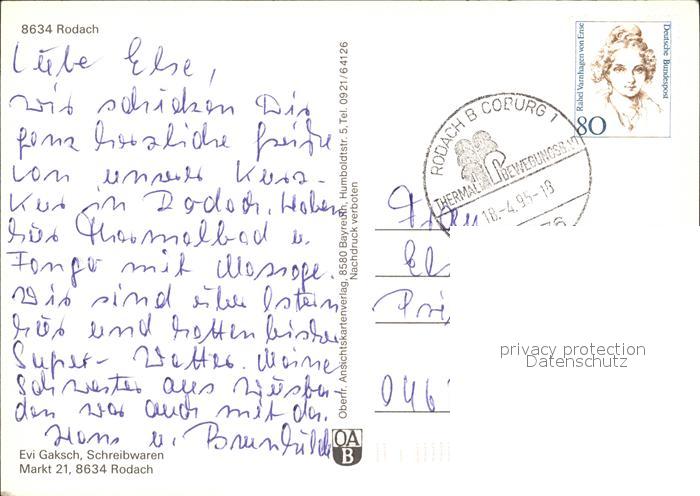 8634 Rodach
Liebe Else,
wir schicken Dir
ganz herzliche Grüße
von unserer Kurz-
Kur in Rodach. Haben
hier Thermalbad u.
Fango mit Massage.
Wir sind über Ostern
hier und hatten bisher
Super- Wetter. Meine
Schwester aus Wiesba-
den war auch mit da.
Hans u. Brunhilde
Evi Gaksch, Schreibwaren
Markt 21, 8634 Rodach
Oberfr. Ansichtskartenverlag, 8580 Bayreuth, Humboldtstr. 5, Tel. 0921/64126
Nachdruck verboten
OA
B
RODACH B COBURG 1
THERMAL BEWEGUNGSBAD
18.-4.95-18
Rahel Varnhagen von Ense
Deutsche Bundespost
80
Frau
El
Pri
046
privacy protection
Datenschutz